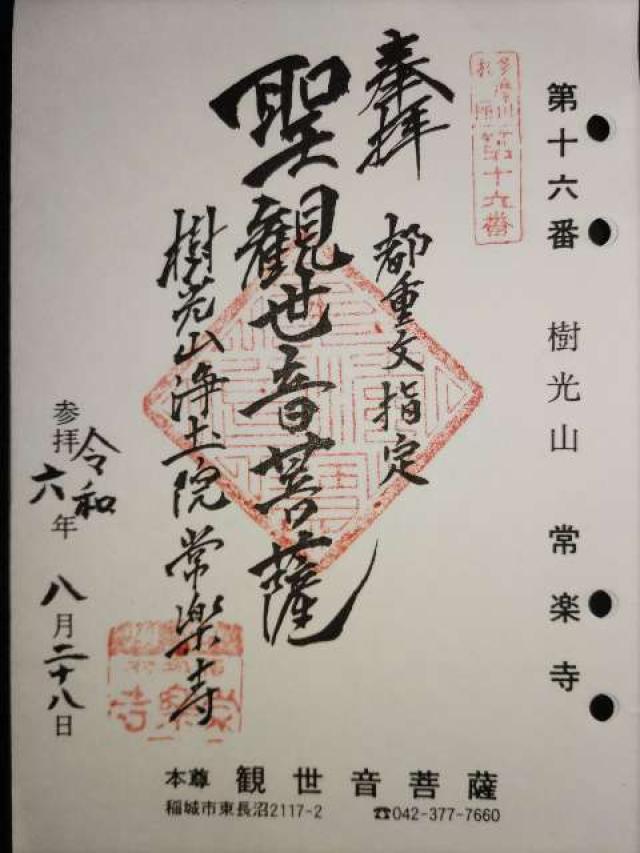 第十六番 樹光山 常楽寺
多摩川
第十六番
奉拝
都重文指定
聖観世音菩薩
樹光山浄土院常楽寺
参拝令和六年八月二十八日
本尊 観世音菩薩
稲城市東長沼2117-2 ☎042-377-7660